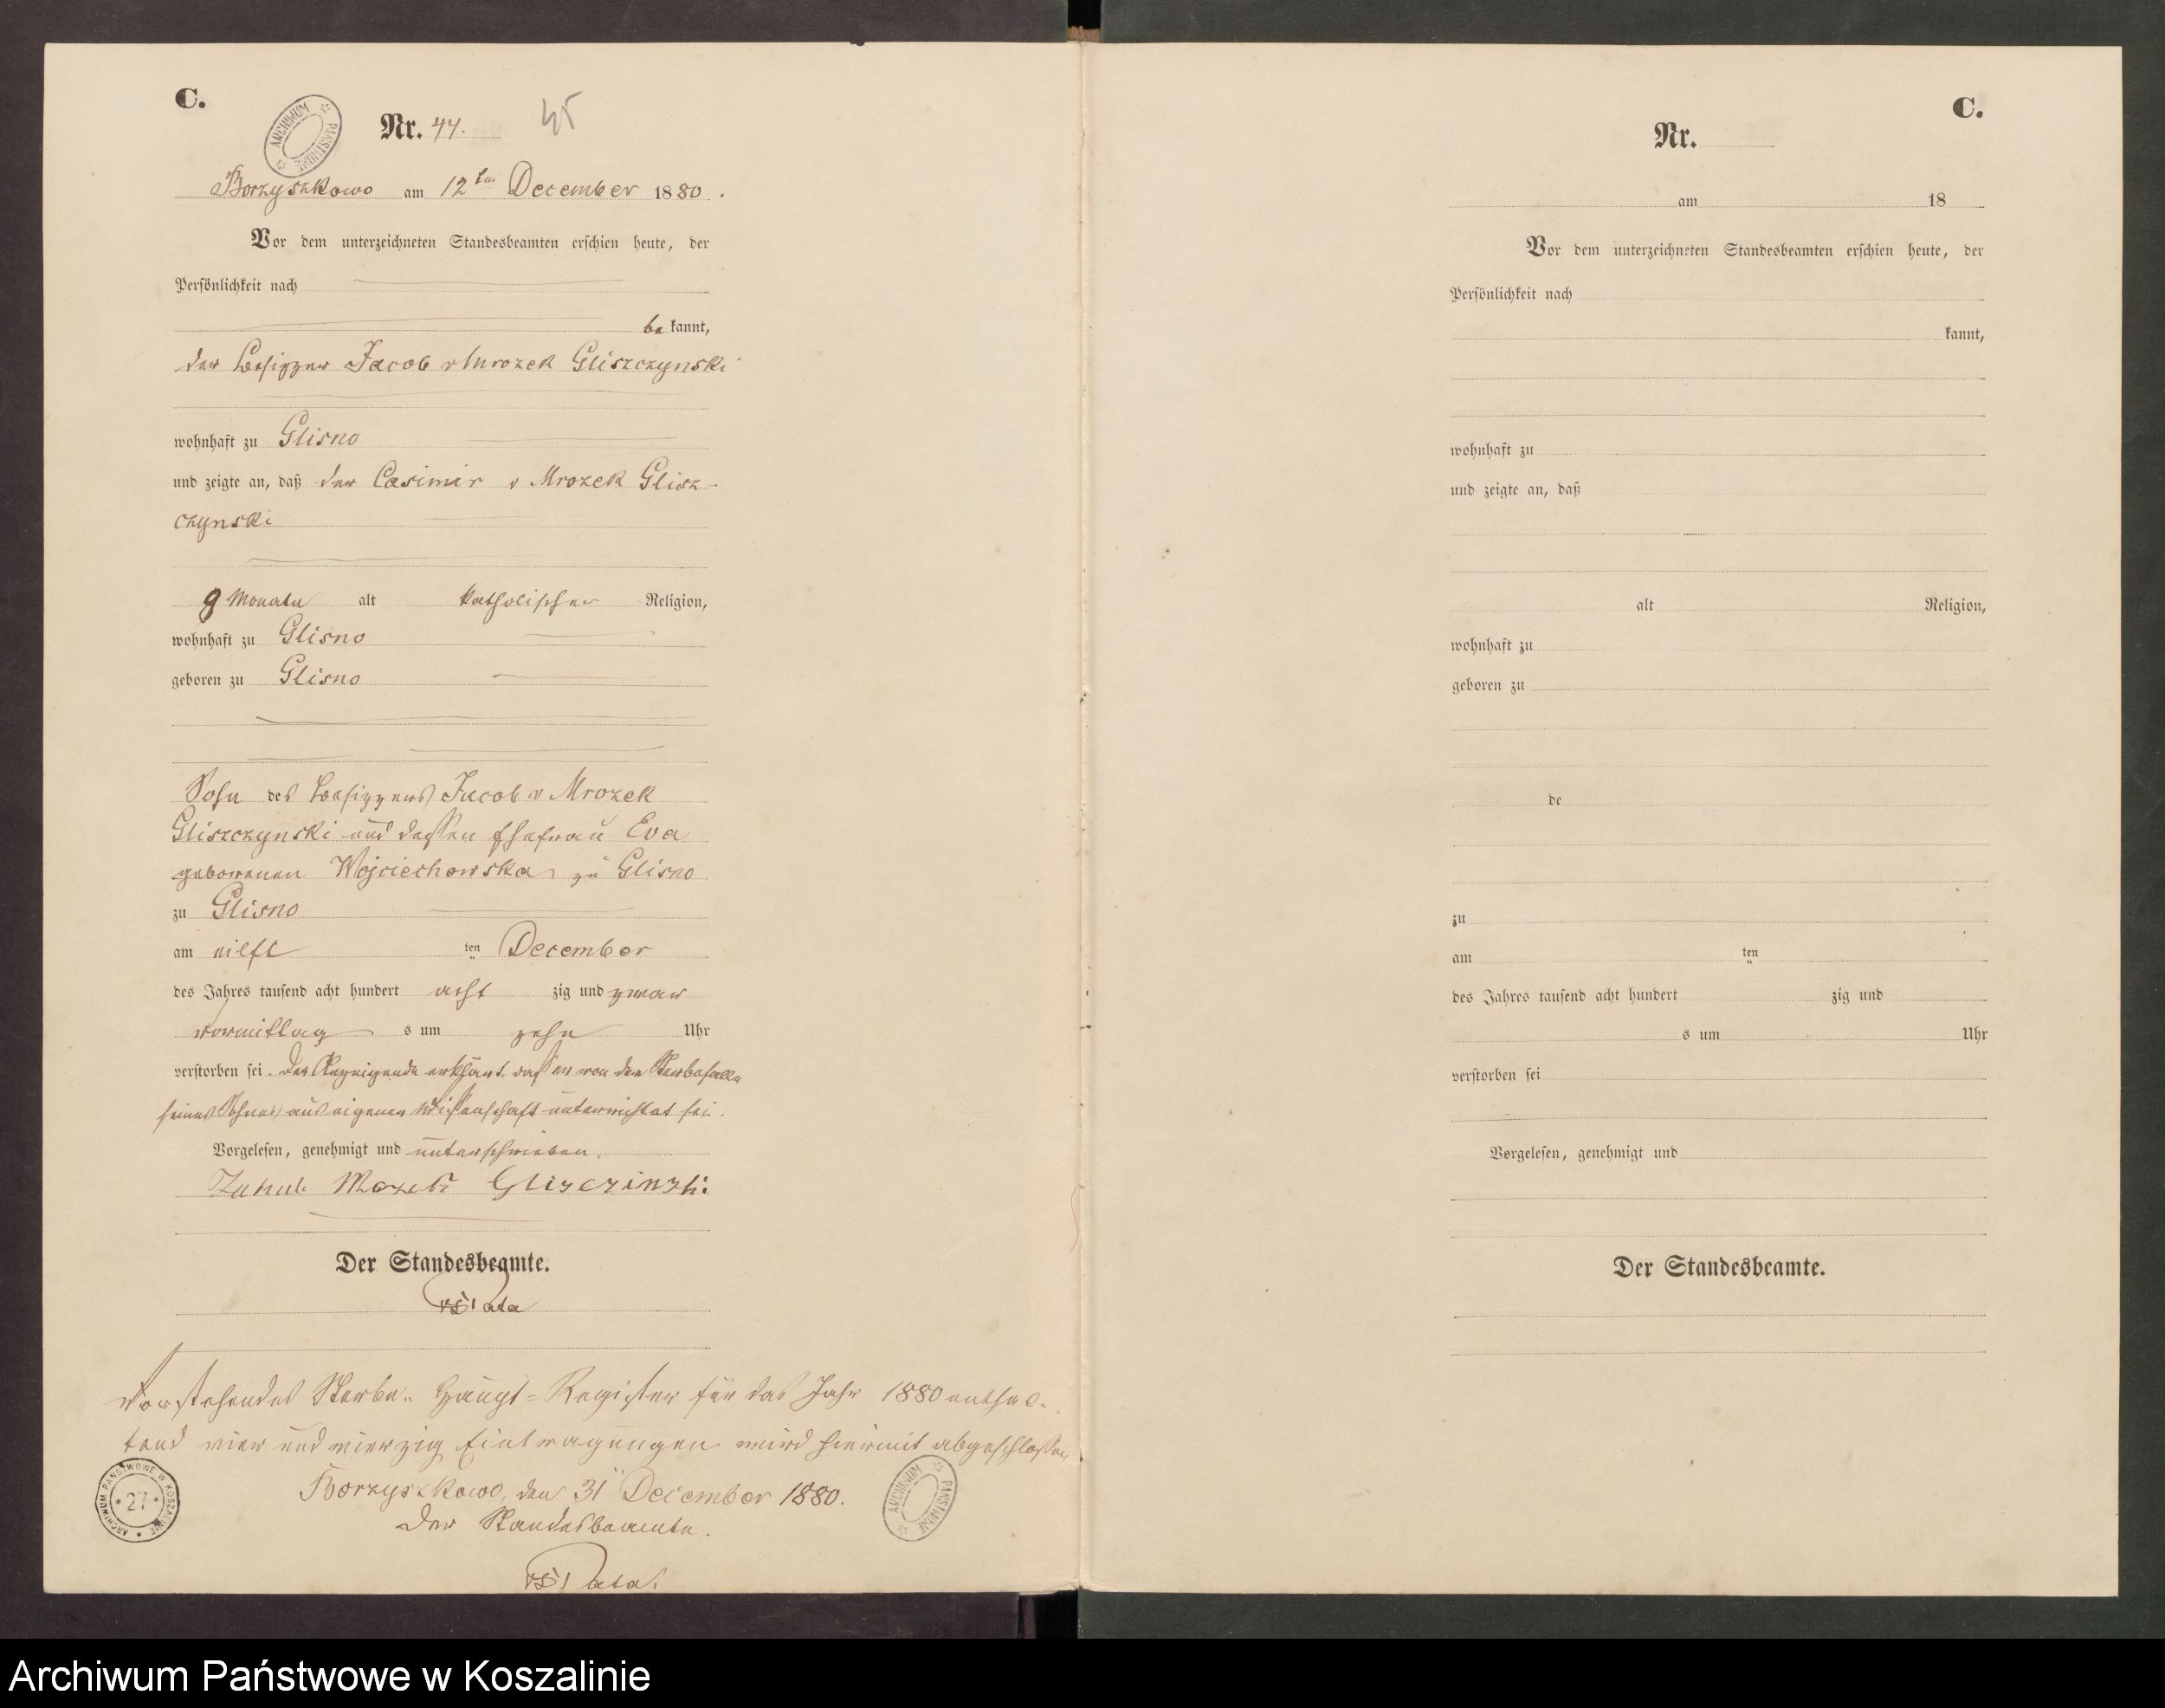 C.
Nr. 44. 45
ARCHIWUM PAŃSTWOWE
Borzyszkowo am 12ten December 1880.
Vor dem unterzeichneten Standesbeamten erschien heute, der
Persönlichkeit nach
bekannt,
der Besitzer Jacob v Mrozek Gliszczynski
wohnhaft zu Glisno
und zeigte an, daß der Casimir v Mrozek Glisz-
czynski
9 Monate alt katholischer Religion,
wohnhaft zu Glisno
geboren zu Glisno
Sohn des Besitzers Jacob v Mrozek
Gliszczynski und dessen Ehefrau Eva
geborenen Wojciechowska zu Glisno
zu Glisno
am eilft ten December
des Jahres tausend acht hundert acht zig und zwar
vormittag s um zehn Uhr
verstorben sei. Der Anzeigende erklärt, daß er von dem Sterbefalle
seines Sohnes aus eigener Wissenschaft unterrichtet sei.
Vorgelesen, genehmigt und unterschrieben.
Jakub Mrozek Gliszczinzki
Der Standesbeamte.
Vorstehendes Sterbe-Haupt-Register für das Jahr 1880 enthal-
tend vier und vierzig Eintragungen wird hiermit abgeschlossen
Borzyszkowo, den 31 December 1880.
Der Standesbeamte.
ARCHIWUM PAŃSTWOWE W KOSZALINIE
* 27 *
ARCHIWUM PAŃSTWOWE
C.
Nr.
am 18
Vor dem unterzeichneten Standesbeamten erschien heute, der
Persönlichkeit nach
kannt,
wohnhaft zu
und zeigte an, daß
alt Religion,
wohnhaft zu
geboren zu
de
zu
am ten
des Jahres tausend acht hundert zig und
s um Uhr
verstorben sei
Vorgelesen, genehmigt und
Der Standesbeamte.
Archiwum Państwowe w Koszalinie